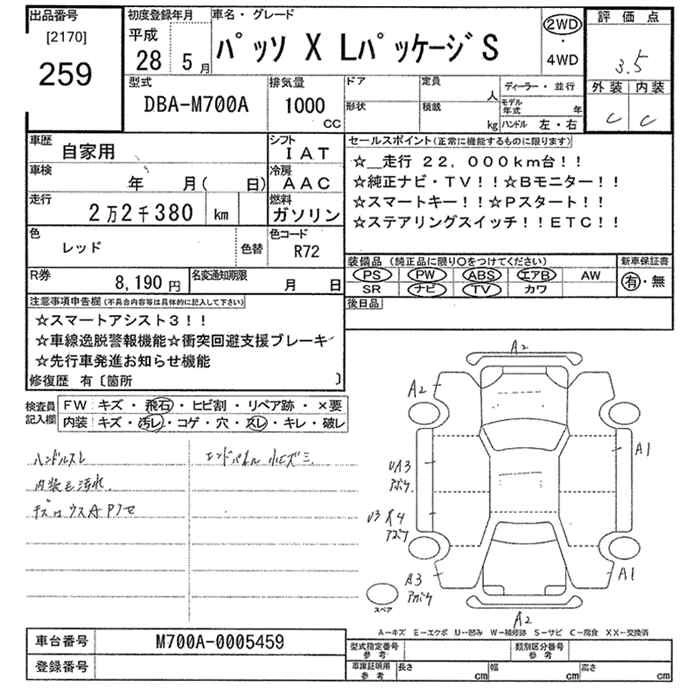 出品番号
[2170]
259
初度登録年月
平成
28 5月
車名・グレード
パッソ X LパッケージS
2WD
・
4WD
評価点
3.5
外装 内装
C C
型式
DBA-M700A
排気量
1000
cc
ドア
形状
定員
人
積載
kg
ディーラー・並行
モデル
年式 年
ハンドル 左・右
車歴
自家用
シフト
IAT
車検
年 月( 日)
冷房
AAC
走行
2万2千380 km
燃料
ガソリン
色
レッド
色替
色コード
R72
R券
8,190円
名変通知期限
月 日
セールスポイント(正常に機能するものに限ります)
☆__走行 22,000km台!!
☆純正ナビ・TV!!☆Bモニター!!
☆スマートキー!!☆Pスタート!!
☆ステアリングスイッチ!!ETC!!
装備品 (純正品に限り○をつけてください)
PS PW ABS エアB AW
SR ナビ TV カワ
新車保証書
有・無
後日品
注意事項申告欄(不具合内容等は具体的に記入して下さい)
☆スマートアシスト3!!
☆車線逸脱警報機能☆衝突回避支援ブレーキ
☆先行車発進お知らせ機能
修復歴 有〔箇所 〕
検査員
記入欄
FW キズ・飛石・ヒビ割・リペア跡・×要
内装 キズ・汚レ・コゲ・穴・スレ・キレ・破レ
ハンドルスレ
内装も汚れ
エンドパネル小ヒズミ
A2
A2
A1
UA3
アバタ
U3
A3
A1
A2
スペア
A−キズ E−エクボ U−凹み W−補修跡 S−サビ C−腐食 XX−交換済
車台番号
M700A-0005459
登録番号
型式指定番号
参考
類別区分番号
参考
車庫証明用
参考
長さ cm
幅 cm
高さ cm